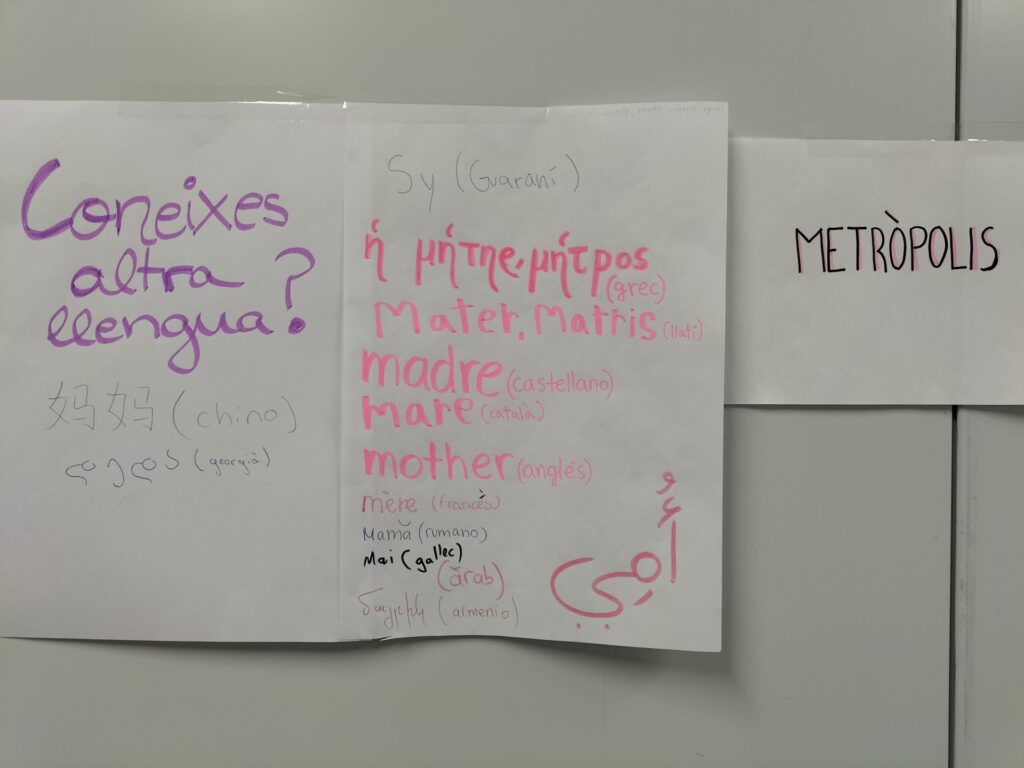 Coneixes
altra
llengua?
妈妈 (chino)
(georgià)
Sy (Guaraní)
ἡ μήτηρ, μήτρος
(grec)
Mater, Matris (llatí)
madre (castellano)
mare (català)
mother (anglés)
mère (francès)
Mamă (rumano)
Mai (gallec)
(àrab)
أُمِّي
մայրիկ (armenio)
METRÒPOLIS